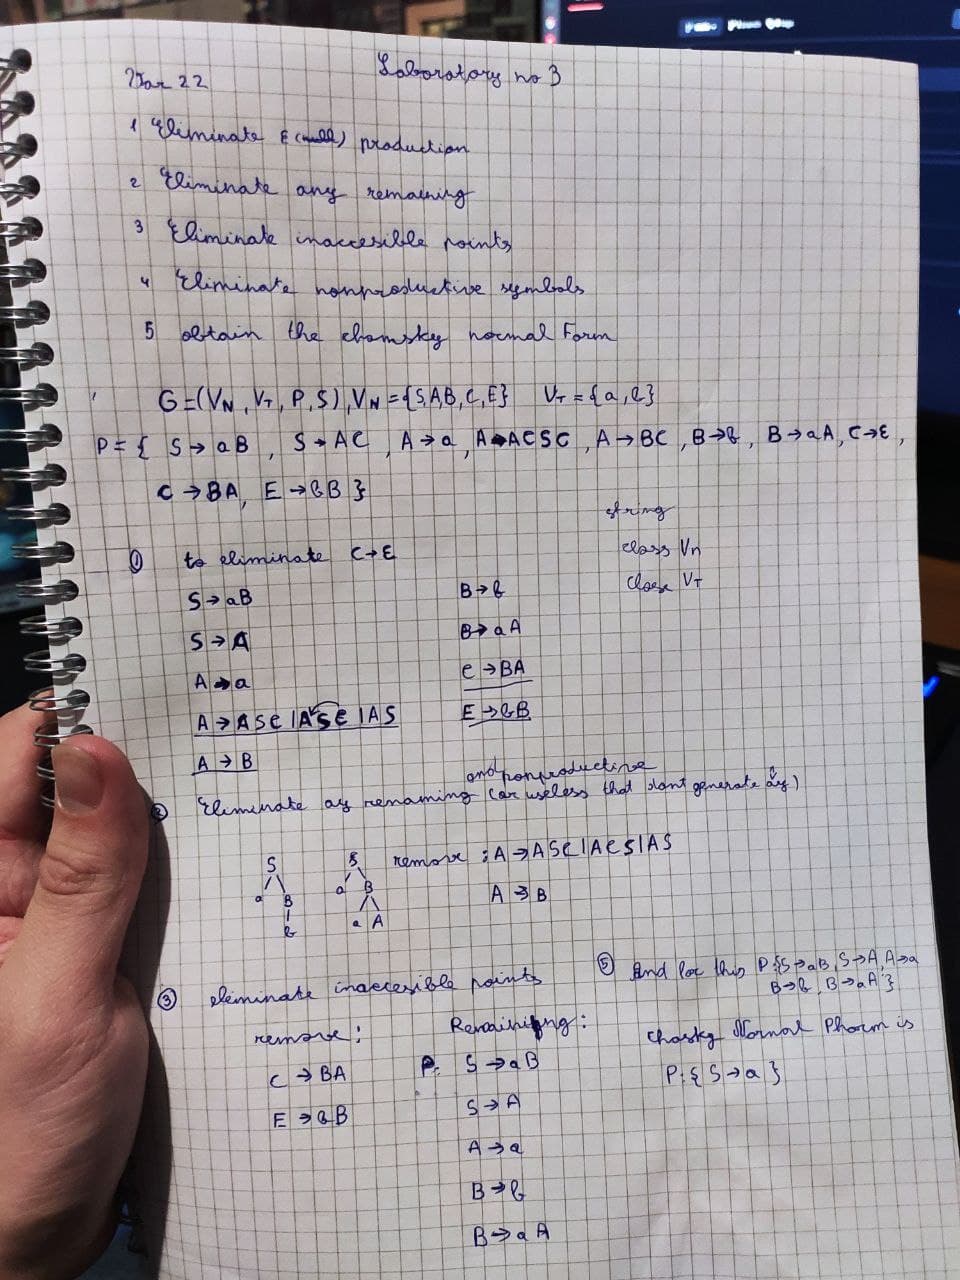 Var 22
Laboratory no 3
1 Eliminate ε (null) production
2 Eliminate any remaining
3 Eliminate inaccesible points
4 Eliminate nonproductive symbols
5 obtain the chomsky normal Form
G=(VN, VT, P, S), VN={S,A,B,C,E} VT={a,b}
P={ S→aB, S→AC, A→a, A→ACSC, A→BC, B→b, B→aA, C→ε,
C→BA, E→bB }
string
class Vn
class VT
① to eliminate C→ε
S→aB
S→A
A→a
A→ASC|ASC|AS
A→B
B→b
B→aA
C→BA
E→bB
and nonproductive
② Eliminate ay renaming (or useless that dont generate ay)
S
a B
b
S
a B
a A
remove : A→ASC|ACS|AS
A→B
③ eliminate inaccesible points
remove :
C→BA
E→bB
Remaining :
P: S→aB
S→A
A→a
B→b
B→aA
⑤ And for this P:{S→aB, S→A, A→a
B→b, B→aA}
Chosky Normal Phorm is
P:{S→a}